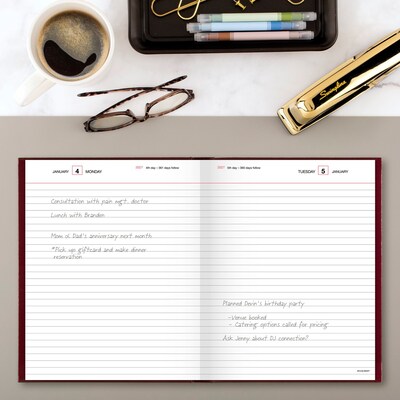 Swingline
JANUARY 4 MONDAY
2021 4th day – 361 days follow
Consultation with pain mgt. doctor
Lunch with Brandon
Mom & Dad's anniversary next month
*Pick up giftcard and make dinner
reservation
5th day – 360 days follow
TUESDAY 5 JANUARY
Planned Devin's birthday party:
-Venue booked
- Catering options called for pricing
Ask Jenny about DJ connection?